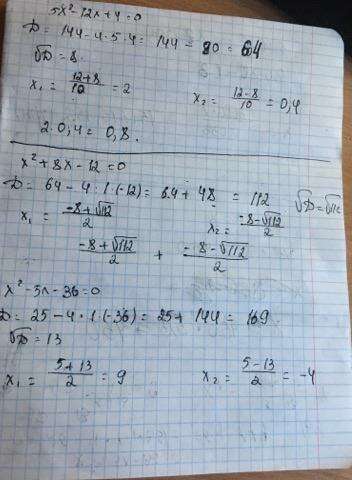 5x² - 12x + 4 = 0
D = 144 - 4 · 5 · 4 = 144 - 80 = 64
√D = 8.
x₁ = (12+8)/10 = 2 x₂ = (12-8)/10 = 0,4
2 · 0,4 = 0,8.
x² + 8x - 12 = 0
D = 64 - 4 · 1 · (-12) = 64 + 48 = 112 √D = √112
x₁ = (-8+√112)/2 x₂ = (-8-√112)/2
(-8+√112)/2 + (-8-√112)/2
x² - 5x - 36 = 0
D = 25 - 4 · 1 · (-36) = 25 + 144 = 169
√D = 13
x₁ = (5+13)/2 = 9 x₂ = (5-13)/2 = -4